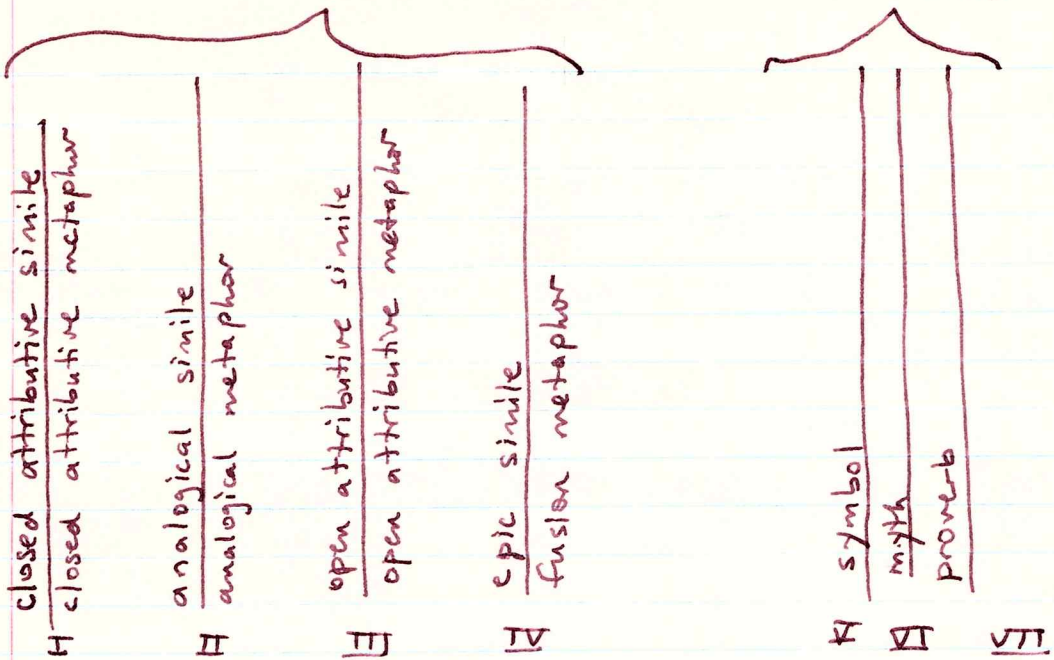 I
closed attributive simile
closed attributive metaphor
II
analogical simile
analogical metaphor
III
open attributive simile
open attributive metaphor
IV
epic simile
fusion metaphor
V
symbol
VI
myth
VII
proverb